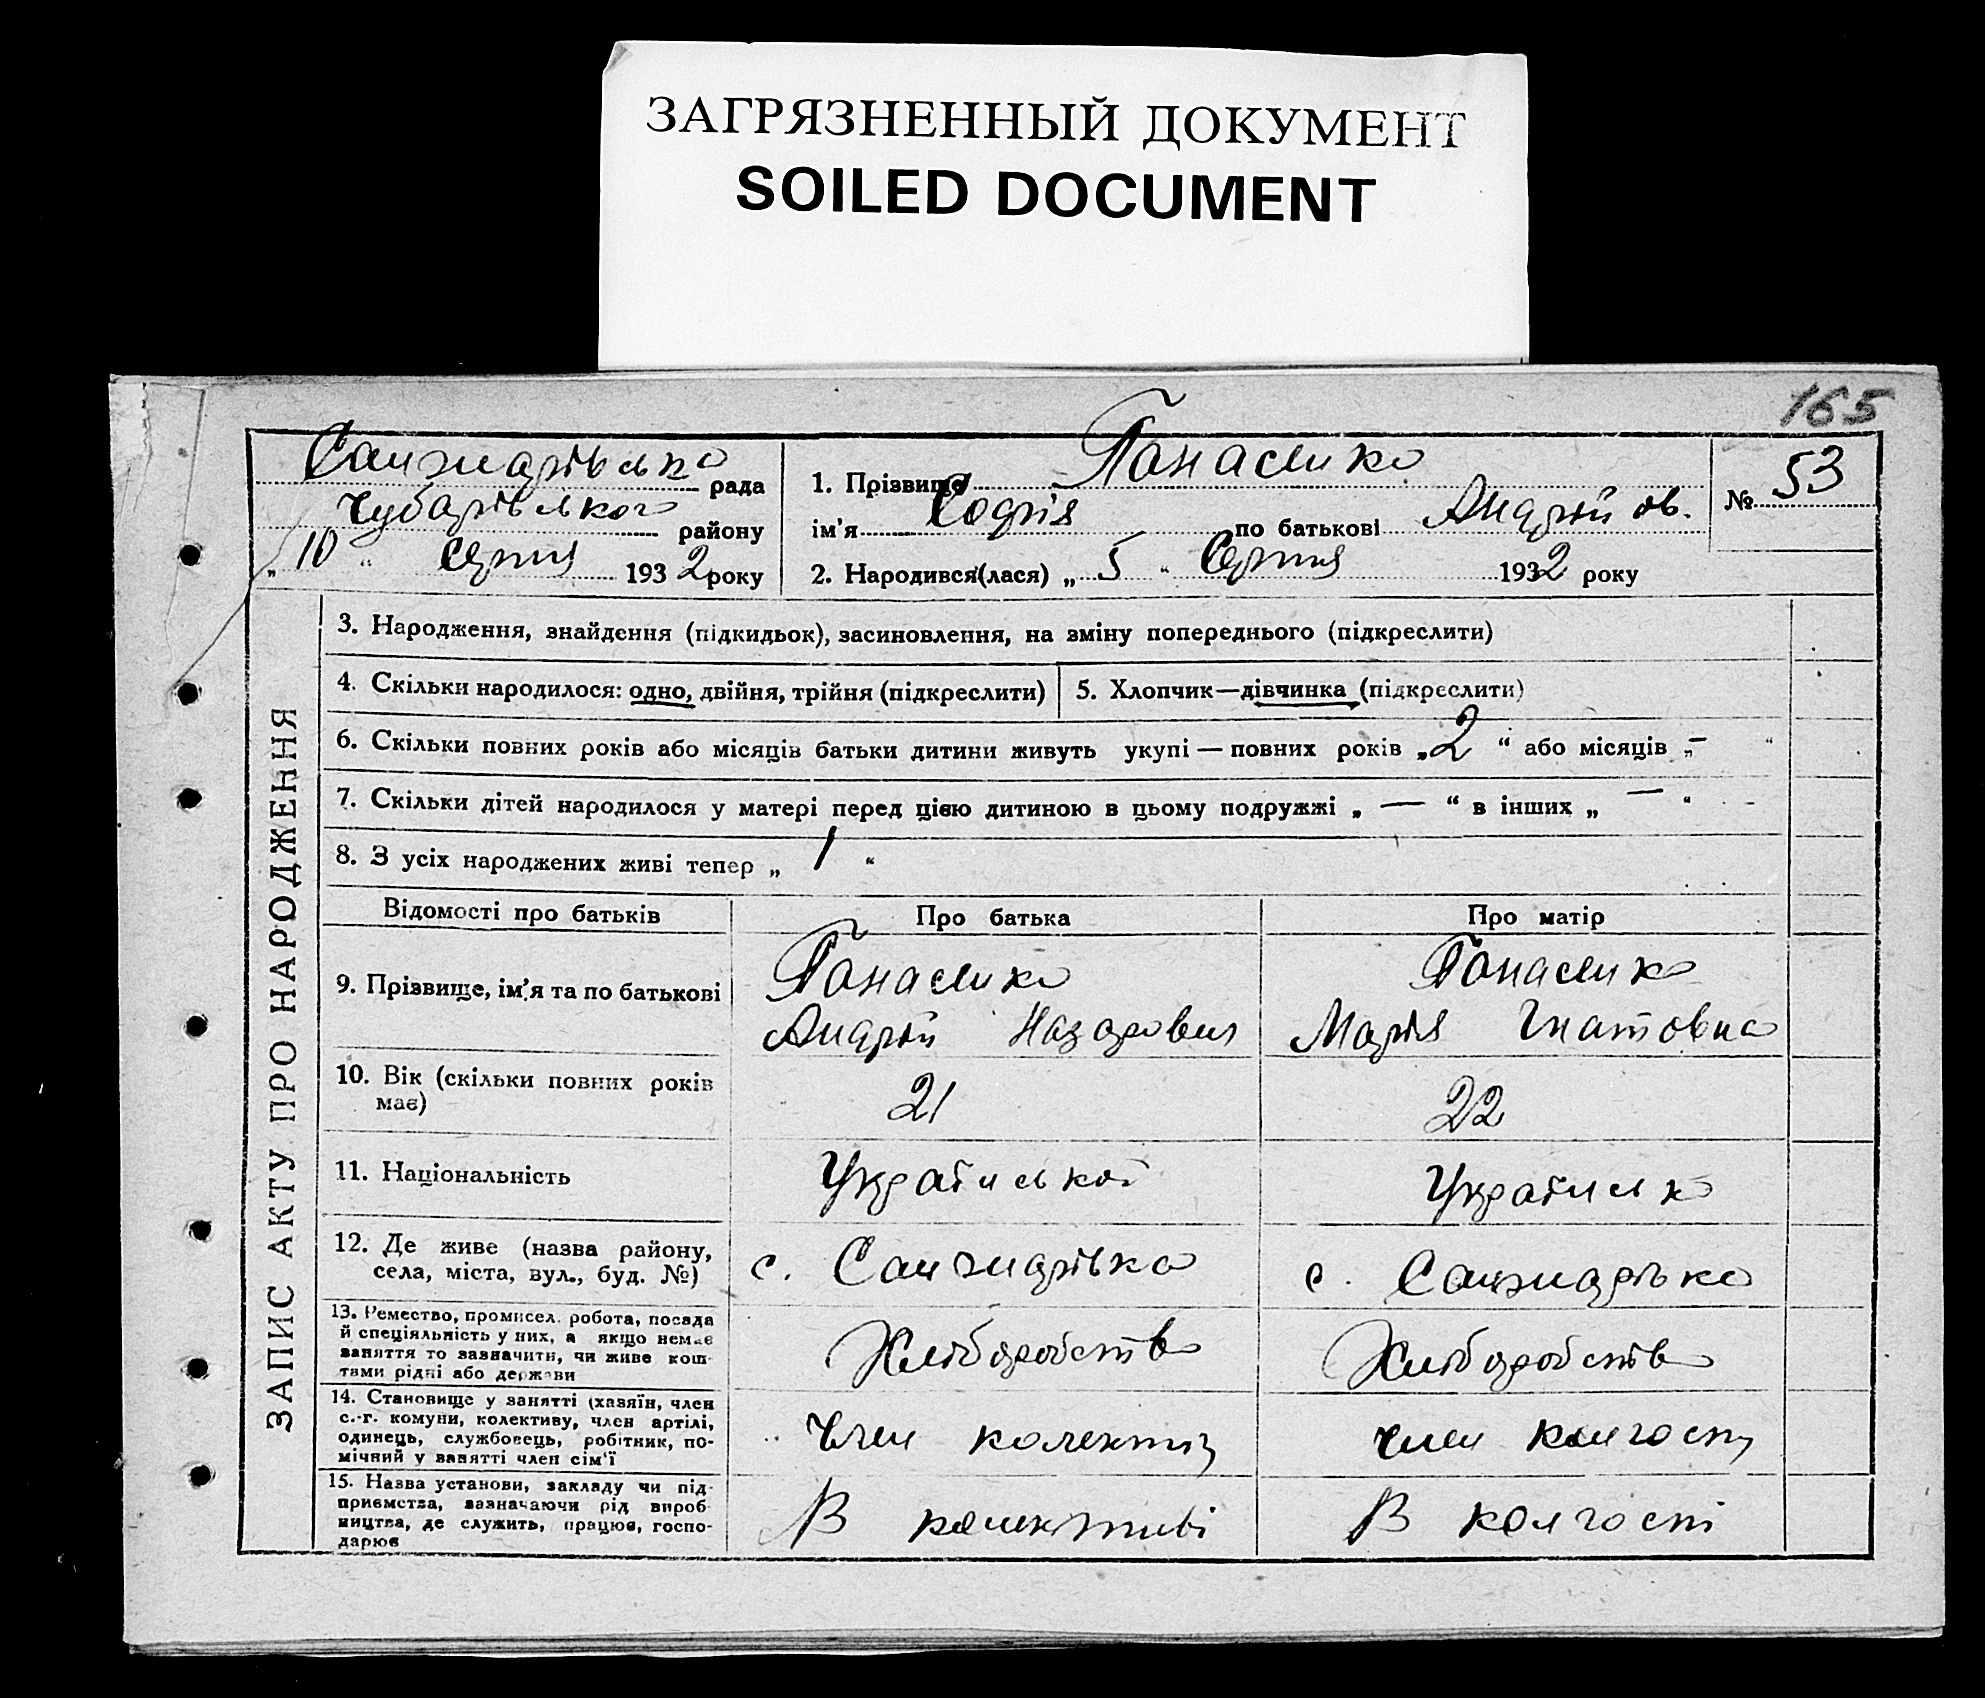 ЗАГРЯЗНЕННЫЙ ДОКУМЕНТ
SOILED DOCUMENT
165
Санжарівська рада
Чубарівського району
„10“ Серпня 1932 року
1. Прізвище Панасенко
ім'я Софія по батькові Андріїов.
2. Народився(лася) „5“ Серпня 1932 року
№ 53
ЗАПИС АКТУ ПРО НАРОДЖЕННЯ
3. Народження, знайдення (підкидьок), засиновлення, на зміну попереднього (підкреслити)
4. Скільки народилося: одно, двійня, трійня (підкреслити)
5. Хлопчик—дівчинка (підкреслити)
6. Скільки повних років або місяців батьки дитини живуть укупі — повних років „2“ або місяців „—“
7. Скільки дітей народилося у матері перед цією дитиною в цьому подружжі „—“ в інших „—“
8. З усіх народжених живі тепер „1“
Відомості про батьків
Про батька
Про матір
9. Прізвище, ім'я та по батькові
Панасенко
Андрій Назарович
Панасенко
Марія Гнатовна
10. Вік (скільки повних років
має)
21
22
11. Національність
Української
Українська
12. Де живе (назва району,
села, міста, вул., буд. №)
с. Санжарівка
с. Санжарівка
13. Ремество, промисел. робота, посада
й спеціяльність у них, а якщо немає
заняття то зазначити, чи живе кош-
тами рідні або держави
Хліборобство
Хліборобство
14. Становище у занятті (хазяїн, член
с.-г. комуни, колективу, член артілі,
одинець, службовець, робітник, по-
мічний у занятті член сім'ї
Член колективу
член колгоспу
15. Назва установи, закладу чи під-
приємства, зазначаючи рід вироб-
ництва, де служить, працює, госпо-
дарює
В колективі
В колгоспі